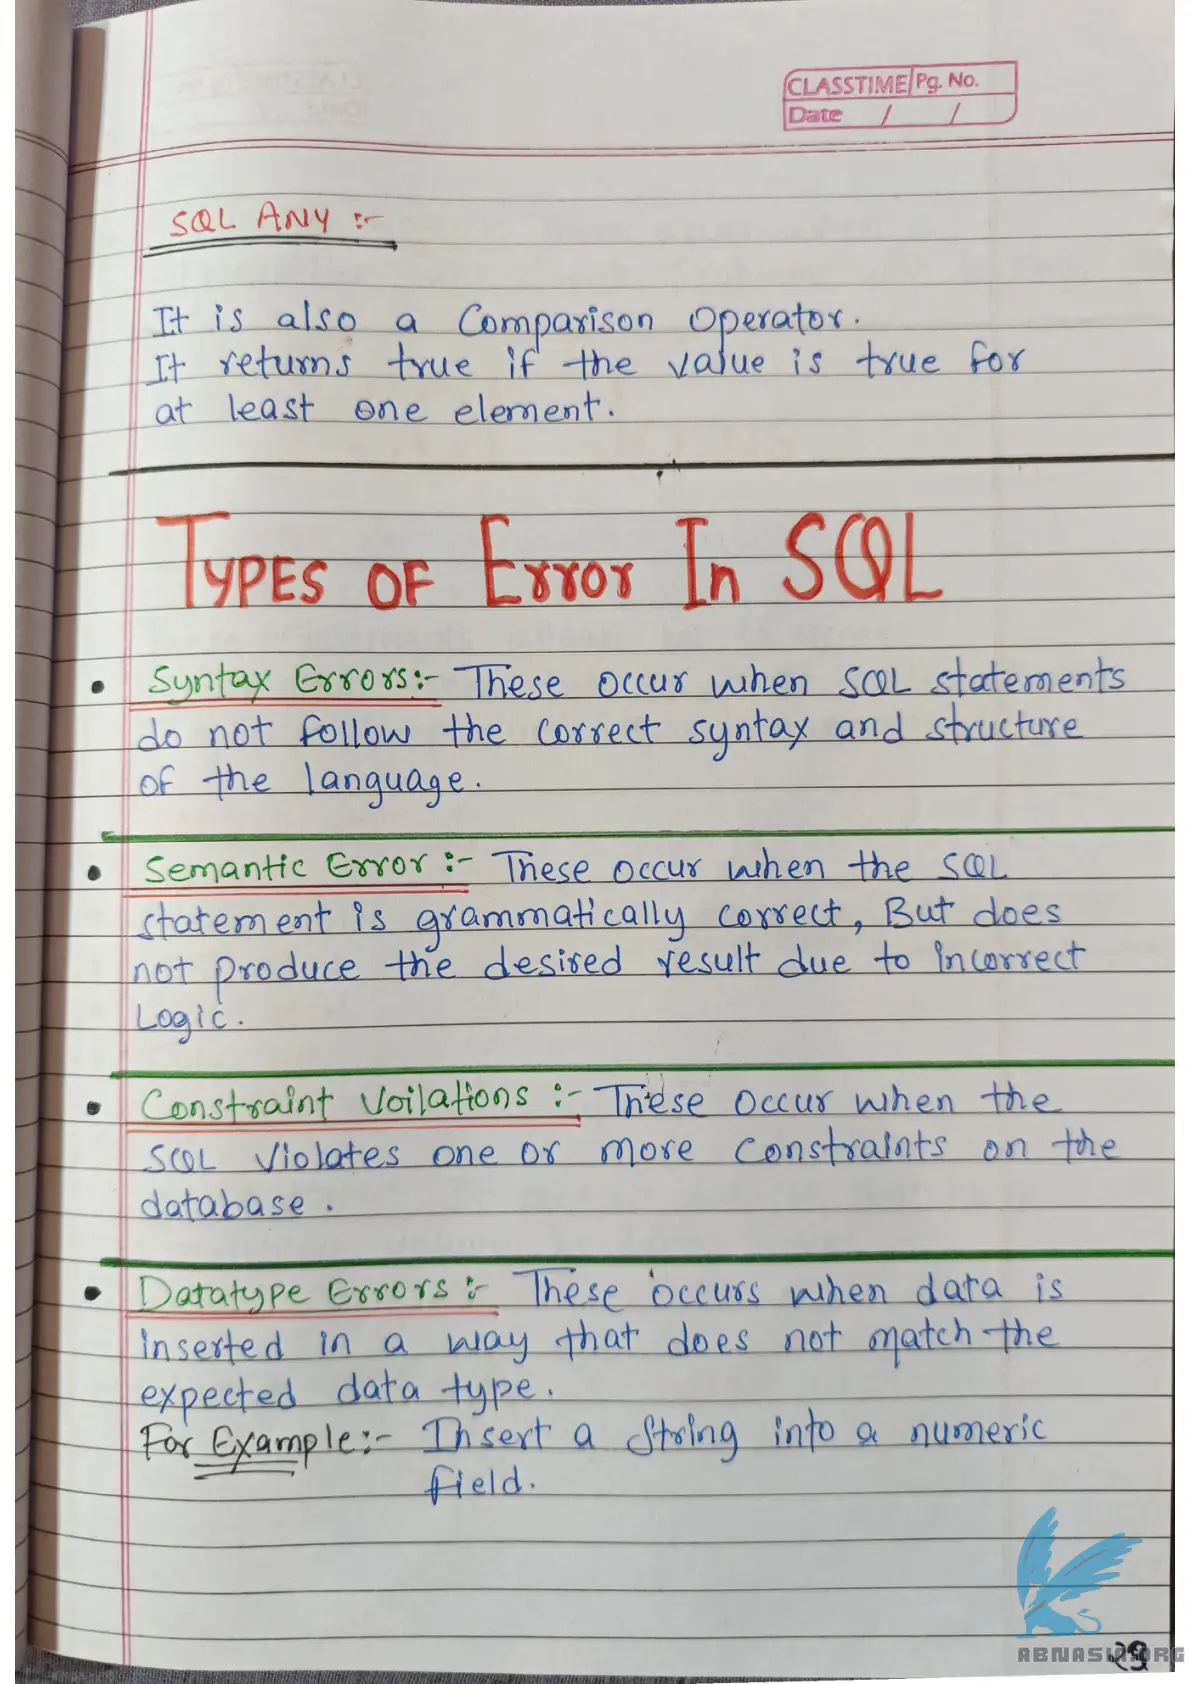 CLASSTIME Pg. No.
Date / /
SQL ANY :-
It is also a Comparison Operator.
It returns true if the value is true for
at least one element.
TYPES OF Error In SQL
• Syntax Errors:- These occur when SQL statements
do not follow the correct syntax and structure
of the language.
• Semantic Error :- These occur when the SQL
statement is grammatically correct, But does
not produce the desired result due to incorrect
Logic.
• Constraint Voilations :- These occur when the
SQL violates one or more constraints on the
database.
• Datatype Errors :- These occurs when data is
inserted in a way that does not match the
expected data type.
For Example:- Insert a string into a numeric
field.
ABNASIA.ORG
29